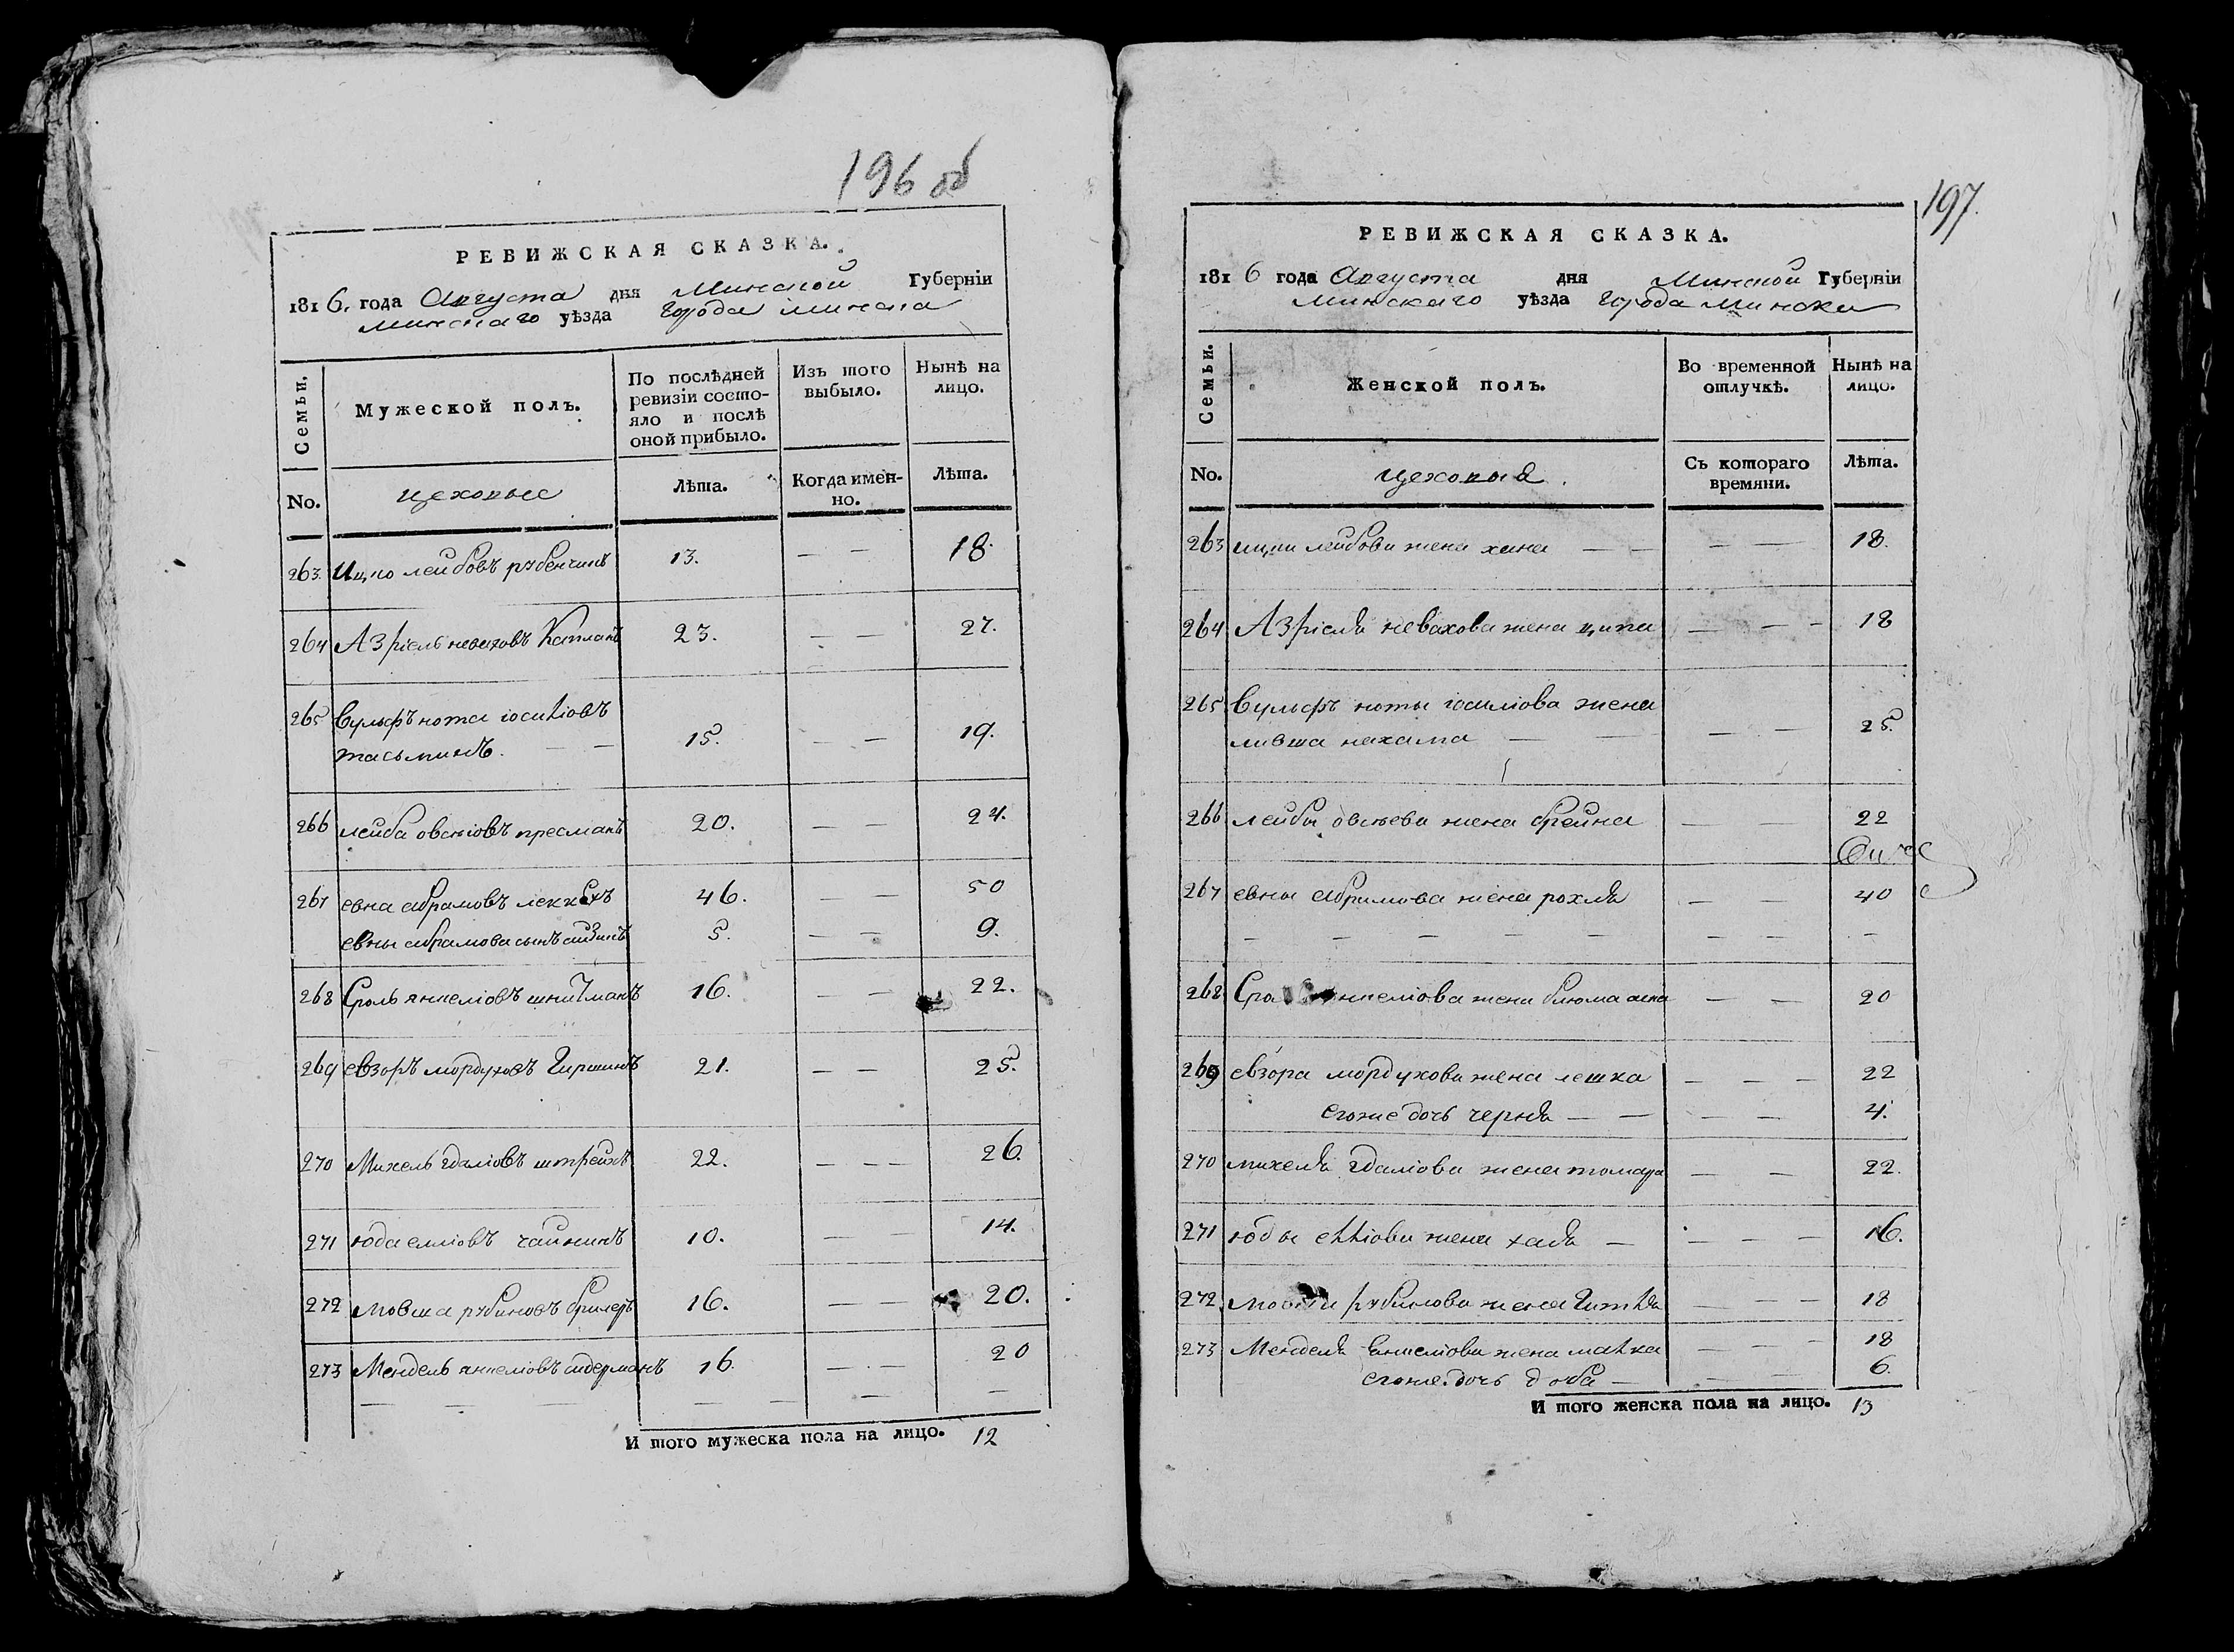 196 об
РЕВИЖСКАЯ СКАЗКА.
1816. года Августа дня Минской Губерніи
Минскаго уѣзда Города Минска
Семьи.
Мужеской полъ.
По послѣдней
ревизіи состо-
яло и послѣ
оной прибыло.
Изъ того
выбыло.
Нынѣ на
лицо.
No.
цеховые
Лѣта.
Когда имен-
но.
Лѣта.
263. Ицко лейбовъ рубенчикъ 13. — — 18.
264 Азріель неваховъ Капланъ 23. — — 27.
265 Вульфъ нота іосиліовъ
тасьминъ. — — 15. — — 19.
266 лейба овсѣіовъ пресманъ 20. — — 24.
267 евна абрамовъ 46. — — 50
евны абрамова сынъ 5. — — 9.
268 Сроль янкеліовъ шнитманъ 16. — — 22.
269 евзоръ мордуховъ Гиршинъ 21. — — 25.
270 Михель гдаліовъ штрейхъ 22. — — — 26.
271 юда еліовъ чайкинъ 10. — — 14.
272 мовша рубиновъ брилеръ 16. — — 20.
273 Мендель янкеліовъ алдерманъ 16. — — 20
— — — — — — —
И того мужеска пола на лицо. 12
197.
РЕВИЖСКАЯ СКАЗКА.
1816 года Августа дня Минской Губерніи
Минскаго уѣзда Города Минска
Семьи.
Женской полъ.
Во временной
отлучкѣ.
Нынѣ на
лицо.
No.
цеховыя.
Съ котораго
времяни.
Лѣта.
263 ицки лейбова жена хана — — — — 18.
264 Азріеля невахова жена ципа — — — 18
265 Вульфъ ноты іосиліова жена
ливша нахама — — — — 25.
266 лейбы овсѣева жена брейна — — 22
267 евны абрамова жена рохля — — 40
— — — — — — — —
268 янкеліова жена блюма — — 20
269 евзора мордухова жена лешка — — — 22
егоже дочь черня — — — — 4.
270 михеля гдаліова жена томара — — 22.
271 юды елліова жена хая — — — — 16.
272 мовши рубинова жена Гитля — — — 18
273 Менделя Янкеліова жена малка — — 18
егоже дочь доба — — — 6.
И того женска пола на лицо. 13